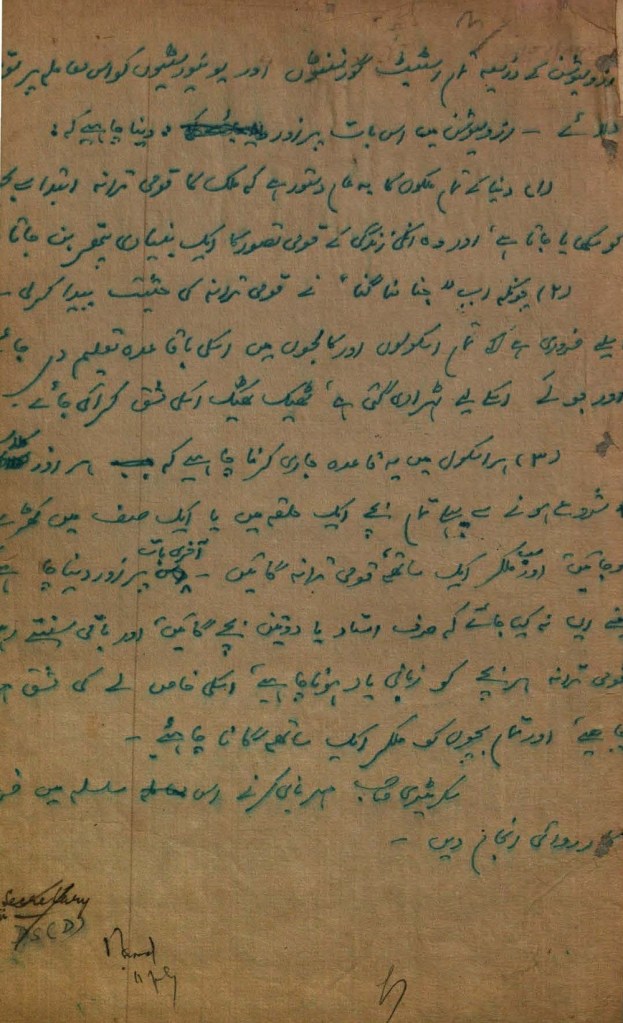 رزولیوشن کے ذریعہ تمام اسٹیٹ گورنمنٹوں اور یونیورسٹیوں کو اس معاملہ پر
دلائے - رزولیوشن میں اس بات پر زور دینا چاہیے کہ:
(۱) دنیا کے تمام ملکوں کا یہ عام دستور ہے کہ ملک کا قومی ترانہ ابتدا سے
کو سکھایا جاتا ہے، اور وہ انکی زندگی کے قومی تصور کا ایک بنیادی پتھر بن جاتا
(۲) چونکہ اب "جنا منا گنا" نے قومی ترانہ کی حیثیت پیدا کرلی -
لیے ضروری ہے کہ تمام اسکولوں اور کالجوں میں اسکی باقاعدہ تعلیم دی جائے
اور جو لے اسکے لیے ٹھہرائی گئی ہے، ٹھیک ٹھیک اسکی مشق کرائی جائے -
(۳) ہر اسکول میں یہ قاعدہ جاری کرنا چاہیے کہ ہر روز
شروع ہونے سے پہلے تمام بچے ایک حلقہ میں یا ایک صف میں کھڑے
ہوجائیں، اور سب ملکر ایک ساتھ قومی ترانہ گائیں - آخری بات پر زور دینا چاہیے
ایسا نہ کیا جائے کہ صرف استاد یا دو تین بچے گائیں، اور باقی سنتے
قومی ترانہ ہر بچے کو زبانی یاد ہونا چاہیے، اسکی خاص لے کی مشق
چاہیے، اور تمام بچوں کو ملکر ایک ساتھ گانا چاہئے -
سکریٹری صاحب مہربانی کرکے اس سلسلہ میں
کارروائی انجام دیں -
Secretary
DS(D)